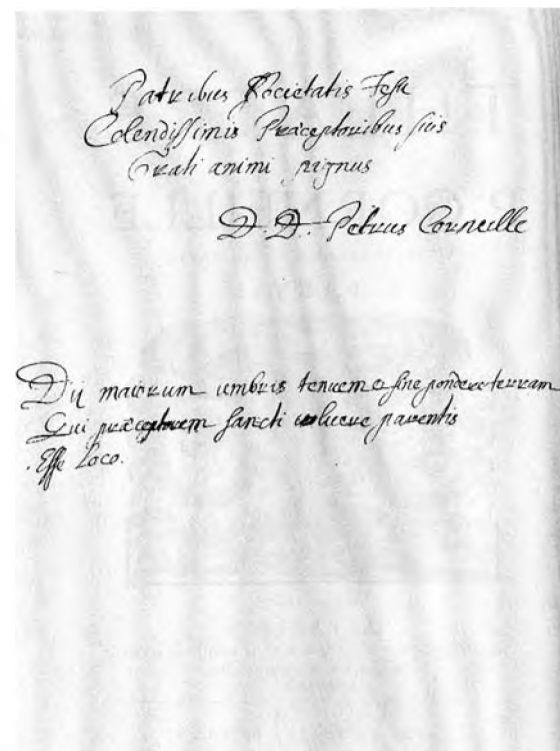 Patribus Societatis Jesu
Colendissimis Præceptoribus suis
Grati animi pignus
D. D. Petrus Corneille
Dij maiorum umbris tenuem et sine pondere terram
Qui præceptorem sancti voluere parentis
Esse Loco.